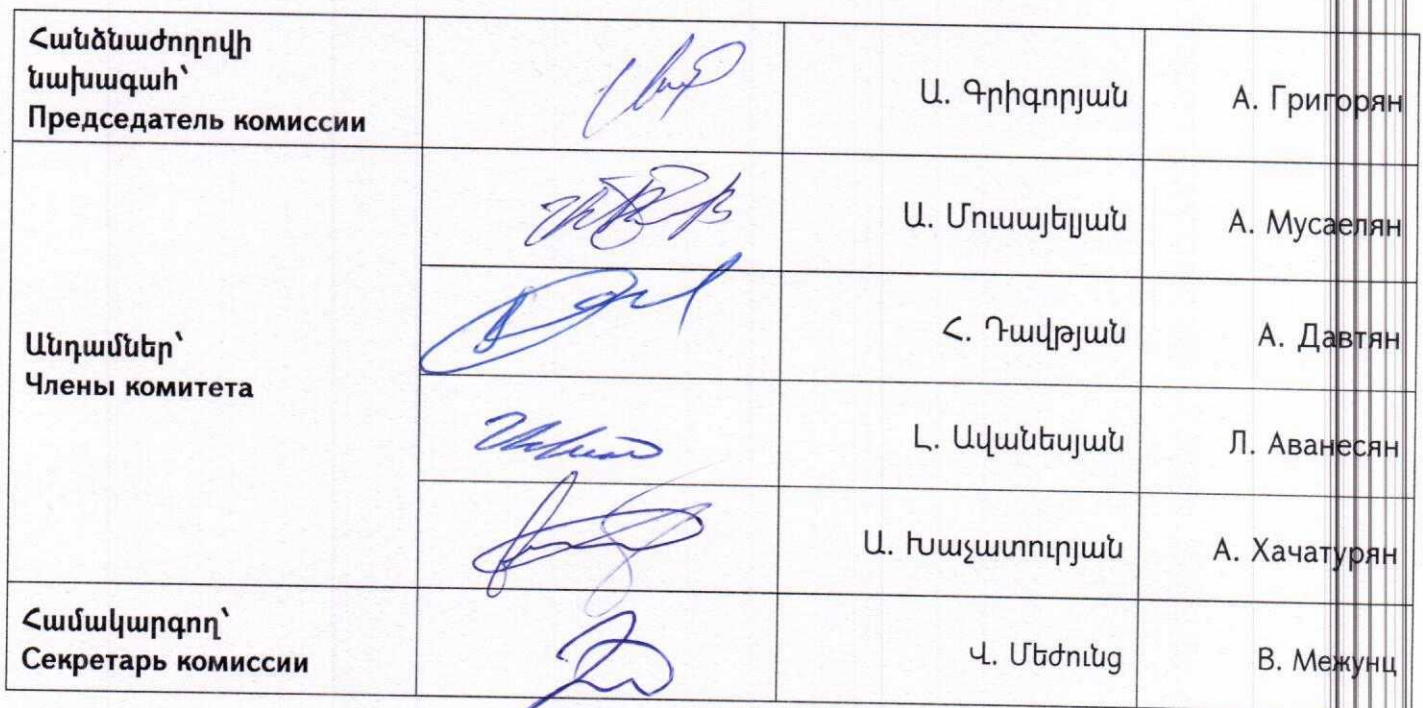 Հանձնաժողովի
նախագահ՝
Председатель комиссии
Ա. Գրիգորյան
А. Григорян
Ա. Մուսայելյան
А. Мусаелян
Անդամներ՝
Члены комитета
Հ. Դավթյան
А. Давтян
Լ. Ավանեսյան
Л. Аванесян
Ա. Խաչատուրյան
А. Хачатурян
Համակարգող՝
Секретарь комиссии
Վ. Մեժունց
В. Межунц